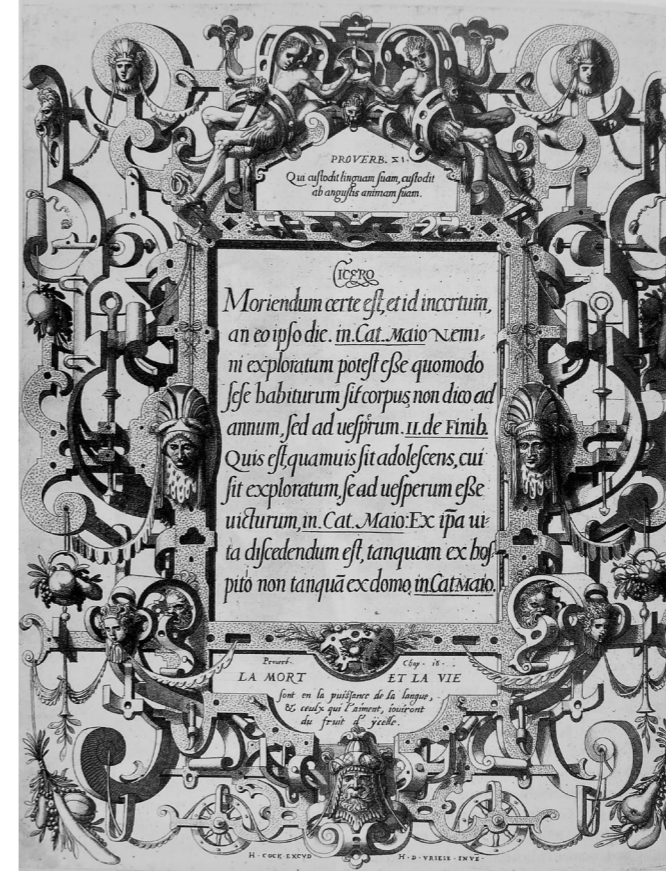 PROVERB. XI.
Qui cuſtodit linguam ſuam, cuſtodit
ab anguſtis animam ſuam.
CICERO
Moriendum certe eſt, et id incertum,
an eo ipſo die. in. Cat. Maio Nemi-
ni exploratum poteſt eſſe quomodo
ſeſe habiturum ſit corpus, non dico ad
annum, ſed ad ueſprum. II. de Finib.
Quis eſt, quamuis ſit adoleſcens, cui
ſit exploratum, ſe ad ueſperum eſſe
uicturum, in. Cat. Maio: Ex ip̄a ui-
ta diſcedendum eſt, tanquam ex hoſ-
pitio non tanquā ex domo, in Cat Maio.
Prouerb. Chap. 18.
LA MORT ET LA VIE
ſont en la puiſſance de la langue,
& ceulx qui l'aiment, iouiront
du fruit d'ycelle.
H. COCK EXCVD H. D. VRIESE INVE.